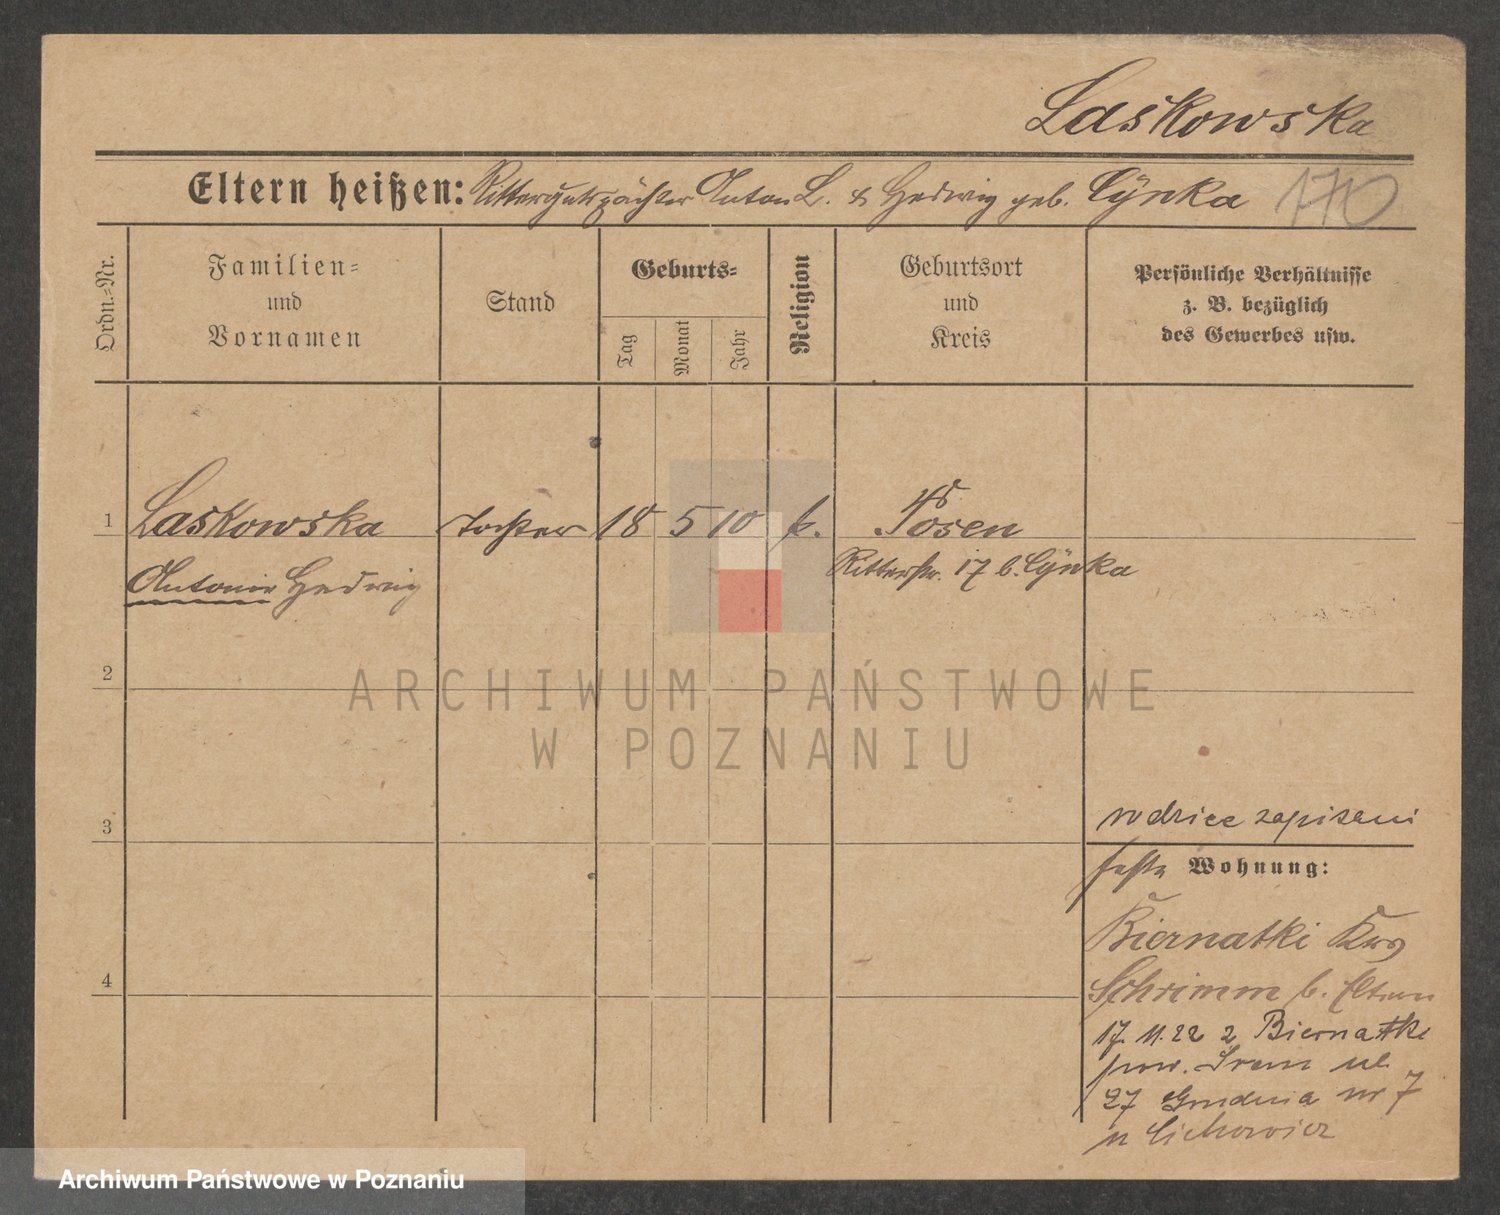 Laskowska
Eltern heißen: Rittergutspächter Anton L. & Hedwig geb. Cynka 170
Ordn.-Nr.
Familien-
und
Vornamen
Stand
Geburts-
Tag
Monat
Jahr
Religion
Geburtsort
und
Kreis
Persönliche Verhältnisse
z. B. bezüglich
des Gewerbes usw.
1 Laskowska Tochter 18 5 10 k. Posen
Antonie Hedwig Ritterstr. 17 b. Cynka
2
ARCHIWUM PAŃSTWOWE
W POZNANIU
rodzice zapisani
3
feste Wohnung:
Biernatki Krs
4
Schrimm b. Eltern
17. 11. 22 z Biernatki
pow. Śrem ul.
27 Grudnia nr 7
u Cichowicz
Archiwum Państwowe w Poznaniu